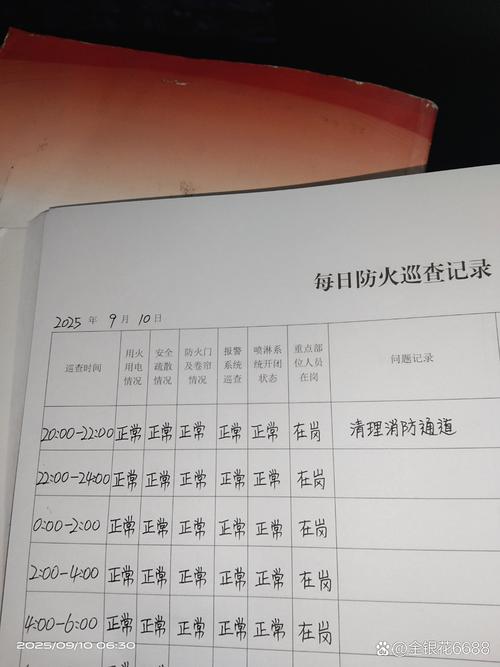 每日防火巡查记录
2025 年 9 月 10 日
巡查时间 用火用电情况 安全疏散情况 防火门及卷帘情况 报警系统巡查 喷淋系统开闭状态 重点部位人员在岗 问题记录
20:00-22:00 正常 正常 正常 正常 正常 在岗 清理消防通道
22:00-24:00 正常 正常 正常 正常 正常 在岗
0:00-2:00 正常 正常 正常 正常 正常 在岗
2:00-4:00 正常 正常 正常 正常 正常 在岗
4:00-6:00 正常 正常 正常 正常 正常 在岗
2025/09/10 06:30
@金银花6688